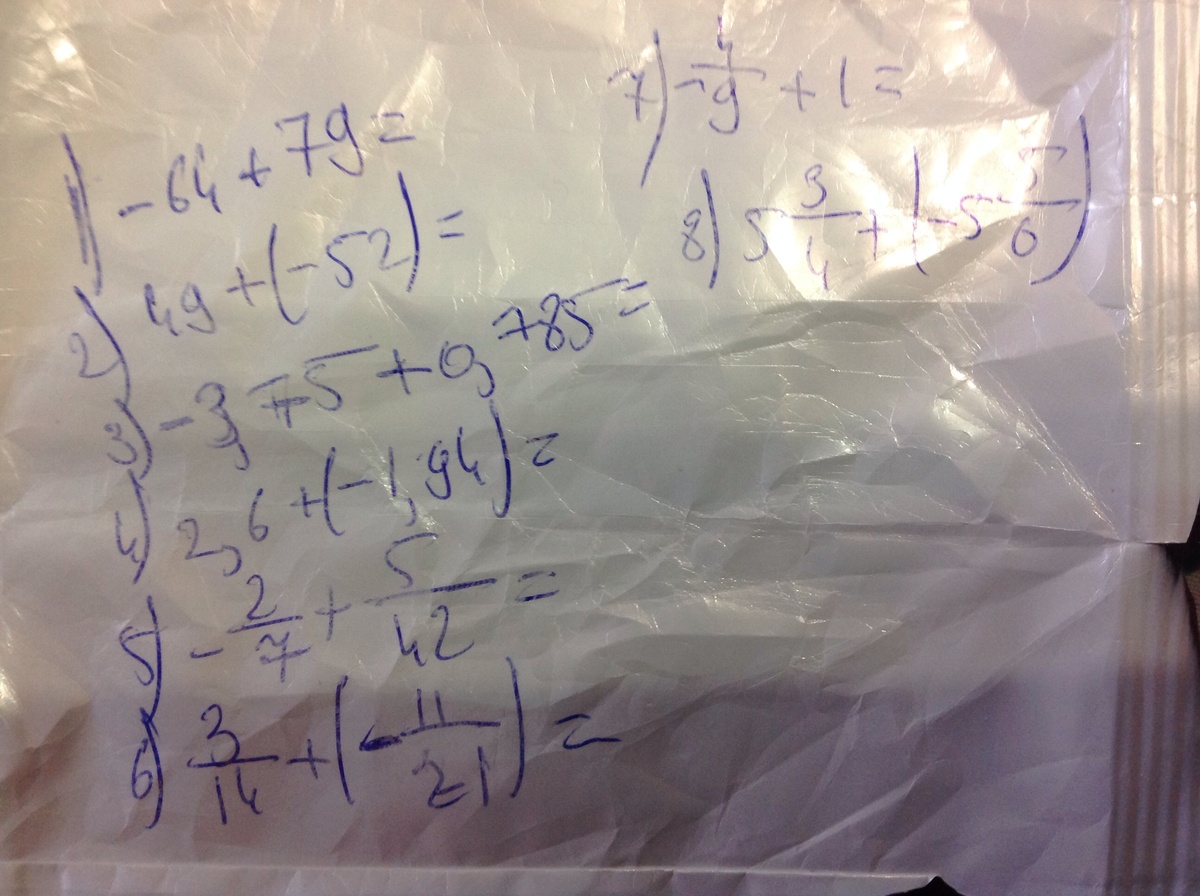 1) -64 + 79 =
2) 49 + (-52) =
3) -3,75 + 0,785 =
4) 2,6 + (-1,94) =
5) - 2/7 + 5/42 =
6) 3/14 + (- 11/21) =
7) - 4/9 + 1 =
8) 5 3/4 + (-5 5/6)